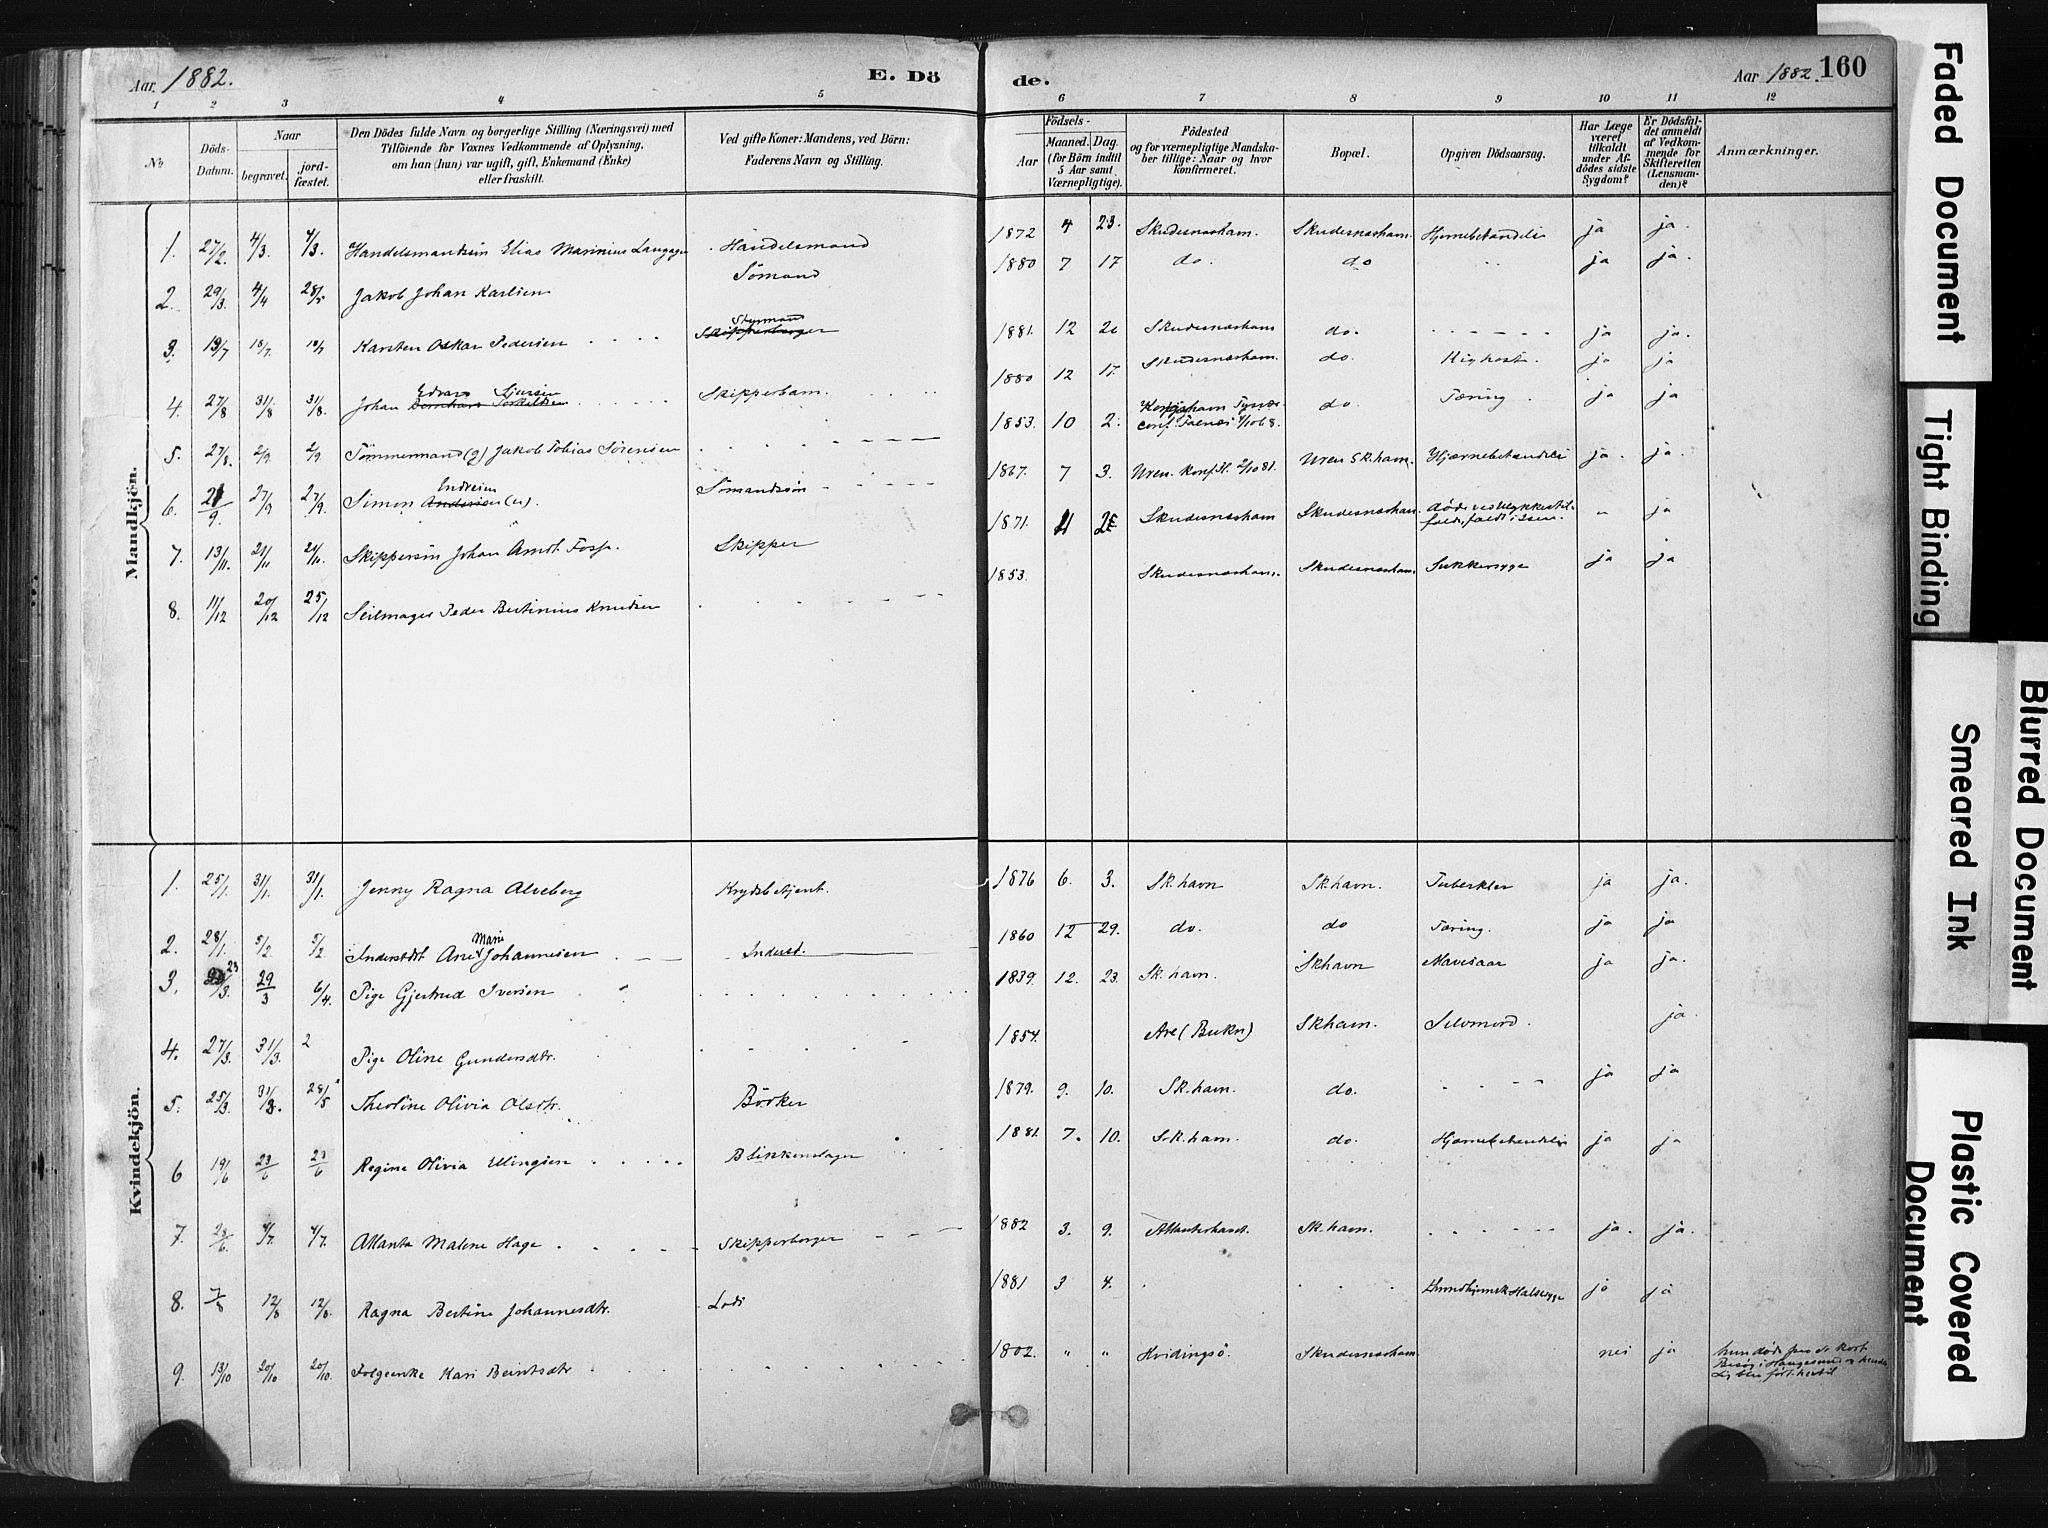 Aar 1882. E. Dö
1 2 3 4 5
No
Döds-Datum.
Naar
begravet.
jord-fæstet.
Den Dödes fulde Navn og borgerlige Stilling (Næringsvei) med
Tilföiende for Voxnes Vedkommende af Oplysning,
om han (hun) var ugift, gift, Enkemand (Enke)
eller fraskilt.
Ved gifte Koner: Mandens, ved Börn:
Faderens Navn og Stilling.
Mandkjön.
1. 27/2. 4/3. 4/3. Handelsmandsön Elias Marinius Handelsmand
2. 29/3 4/4 28/5 Jakob Johan Karlsen Sömand
3. 13/7 18/7. Karsten Oskar Pedersen Styrmand
4. 27/8 31/8 31/8. Johan Edvard Sjursen Skipperbarn.
5. 27/8. 2/9. 2/9 Tömmermand (g) Jakob Tobias Sörensen
6. 21/9. 27/9 27/9. Simon Endresen (u). Sömandssön
7. 13/11. 21/11 21/11. Skippersön Johan Arndt Foss. Skipper
8. 11/12 20/12 25/12 Seilmager Peder Bertinius Knudsen
Kvindekjön.
1. 25/1. 31/1. 31/1. Jenny Ragna Alseberg Krydsbetjent.
2. 28/1. 5/2. 5/2. Inderstdt Ane Marie Johannesen Inderst.
3. 23/3. 29/3 6/4. Pige Gjertrud Iversen
4. 27/3. 31/3. 2 Pige Oline Gundersdtr.
5. 25/3. 31/3. 28/5 Theoline Olivia Olsdtr. Bödker
6 19/6 23/6 23/6 Regine Olivia Ulingsen Blikkenslager
7. 4/7. 4/7. Atlanta Malene Hage Skipperborger
8. 7/8 12/8 12/8. Ragna Bertine Johannesdtr. Lods
9. 13/10 20/10 20/10. Kari Berntsdtr
de. Aar 1882. 160
6 7 8 9 10 11 12
Födsels-
Aar
Maaned. Dag.
(for Börn indtil
5 Aar samt
Værnepligtige).
Födested
og for værnepligtige Mandska-
ber tillige: Naar og hvor
konfirmeret.
Bopæl.
Opgiven Dödsaarsag.
Har Læge
været
tilkaldt
under Af-
dödes sidste
Sygdom?
Er Dödsfal-
det anmeldt
af Vedkom-
mende for
Skifteretten
(Lensman-
den)?
Anmærkninger.
1872 4 23. Skudesneshavn. Skudesneshavn. Hjernebetændelse ja ja.
1880 7 17 do. do ja ja.
1881. 12 Skudesneshavn do. ja ja.
1880 12 17. Skudesneshavn. do. Kighoste. ja ja
1853. 10 2. do Tæring. ja ja
1867. 7 3. Uren. Konf. Uren Sk.havn. Hjærnebetændelse ja. ja.
1871. Skudesneshavn Skudesneshavn. døde ved ulykkestil-
fælde, faldt i søen. " ja
1853. Skudesneshavn. Skudesneshavn. Sukkersyge ja ja
1876 6. 3. Sk.havn Sk.havn. Tuberkler ja ja.
1860 12 29. do. do Tæring. ja ja
1839. 12. 23. Sk.havn. Skhavn Mavesaar ja ja.
1854. Are (Bukn) Skhavn. Selvmord. ja.
1879. 9. 10. Sk.havn. do. ja ja
1881. 7. 10. Sk.havn. do. Hjernebetændelse ja ja
1882 3. 9. Atlanterhavet. Sk.havn. ja. ja.
1881 3 4. Ondskjendt Halssyge ja ja
1802. " " Hvidingsö. Skudesneshavn nei ja hun døde paa et kort
Besøg i Haugesund og hendes
Lig blev ført hertil
Faded Document
Tight Binding
Blurred Document
Smeared Ink
Plastic Covered
Document